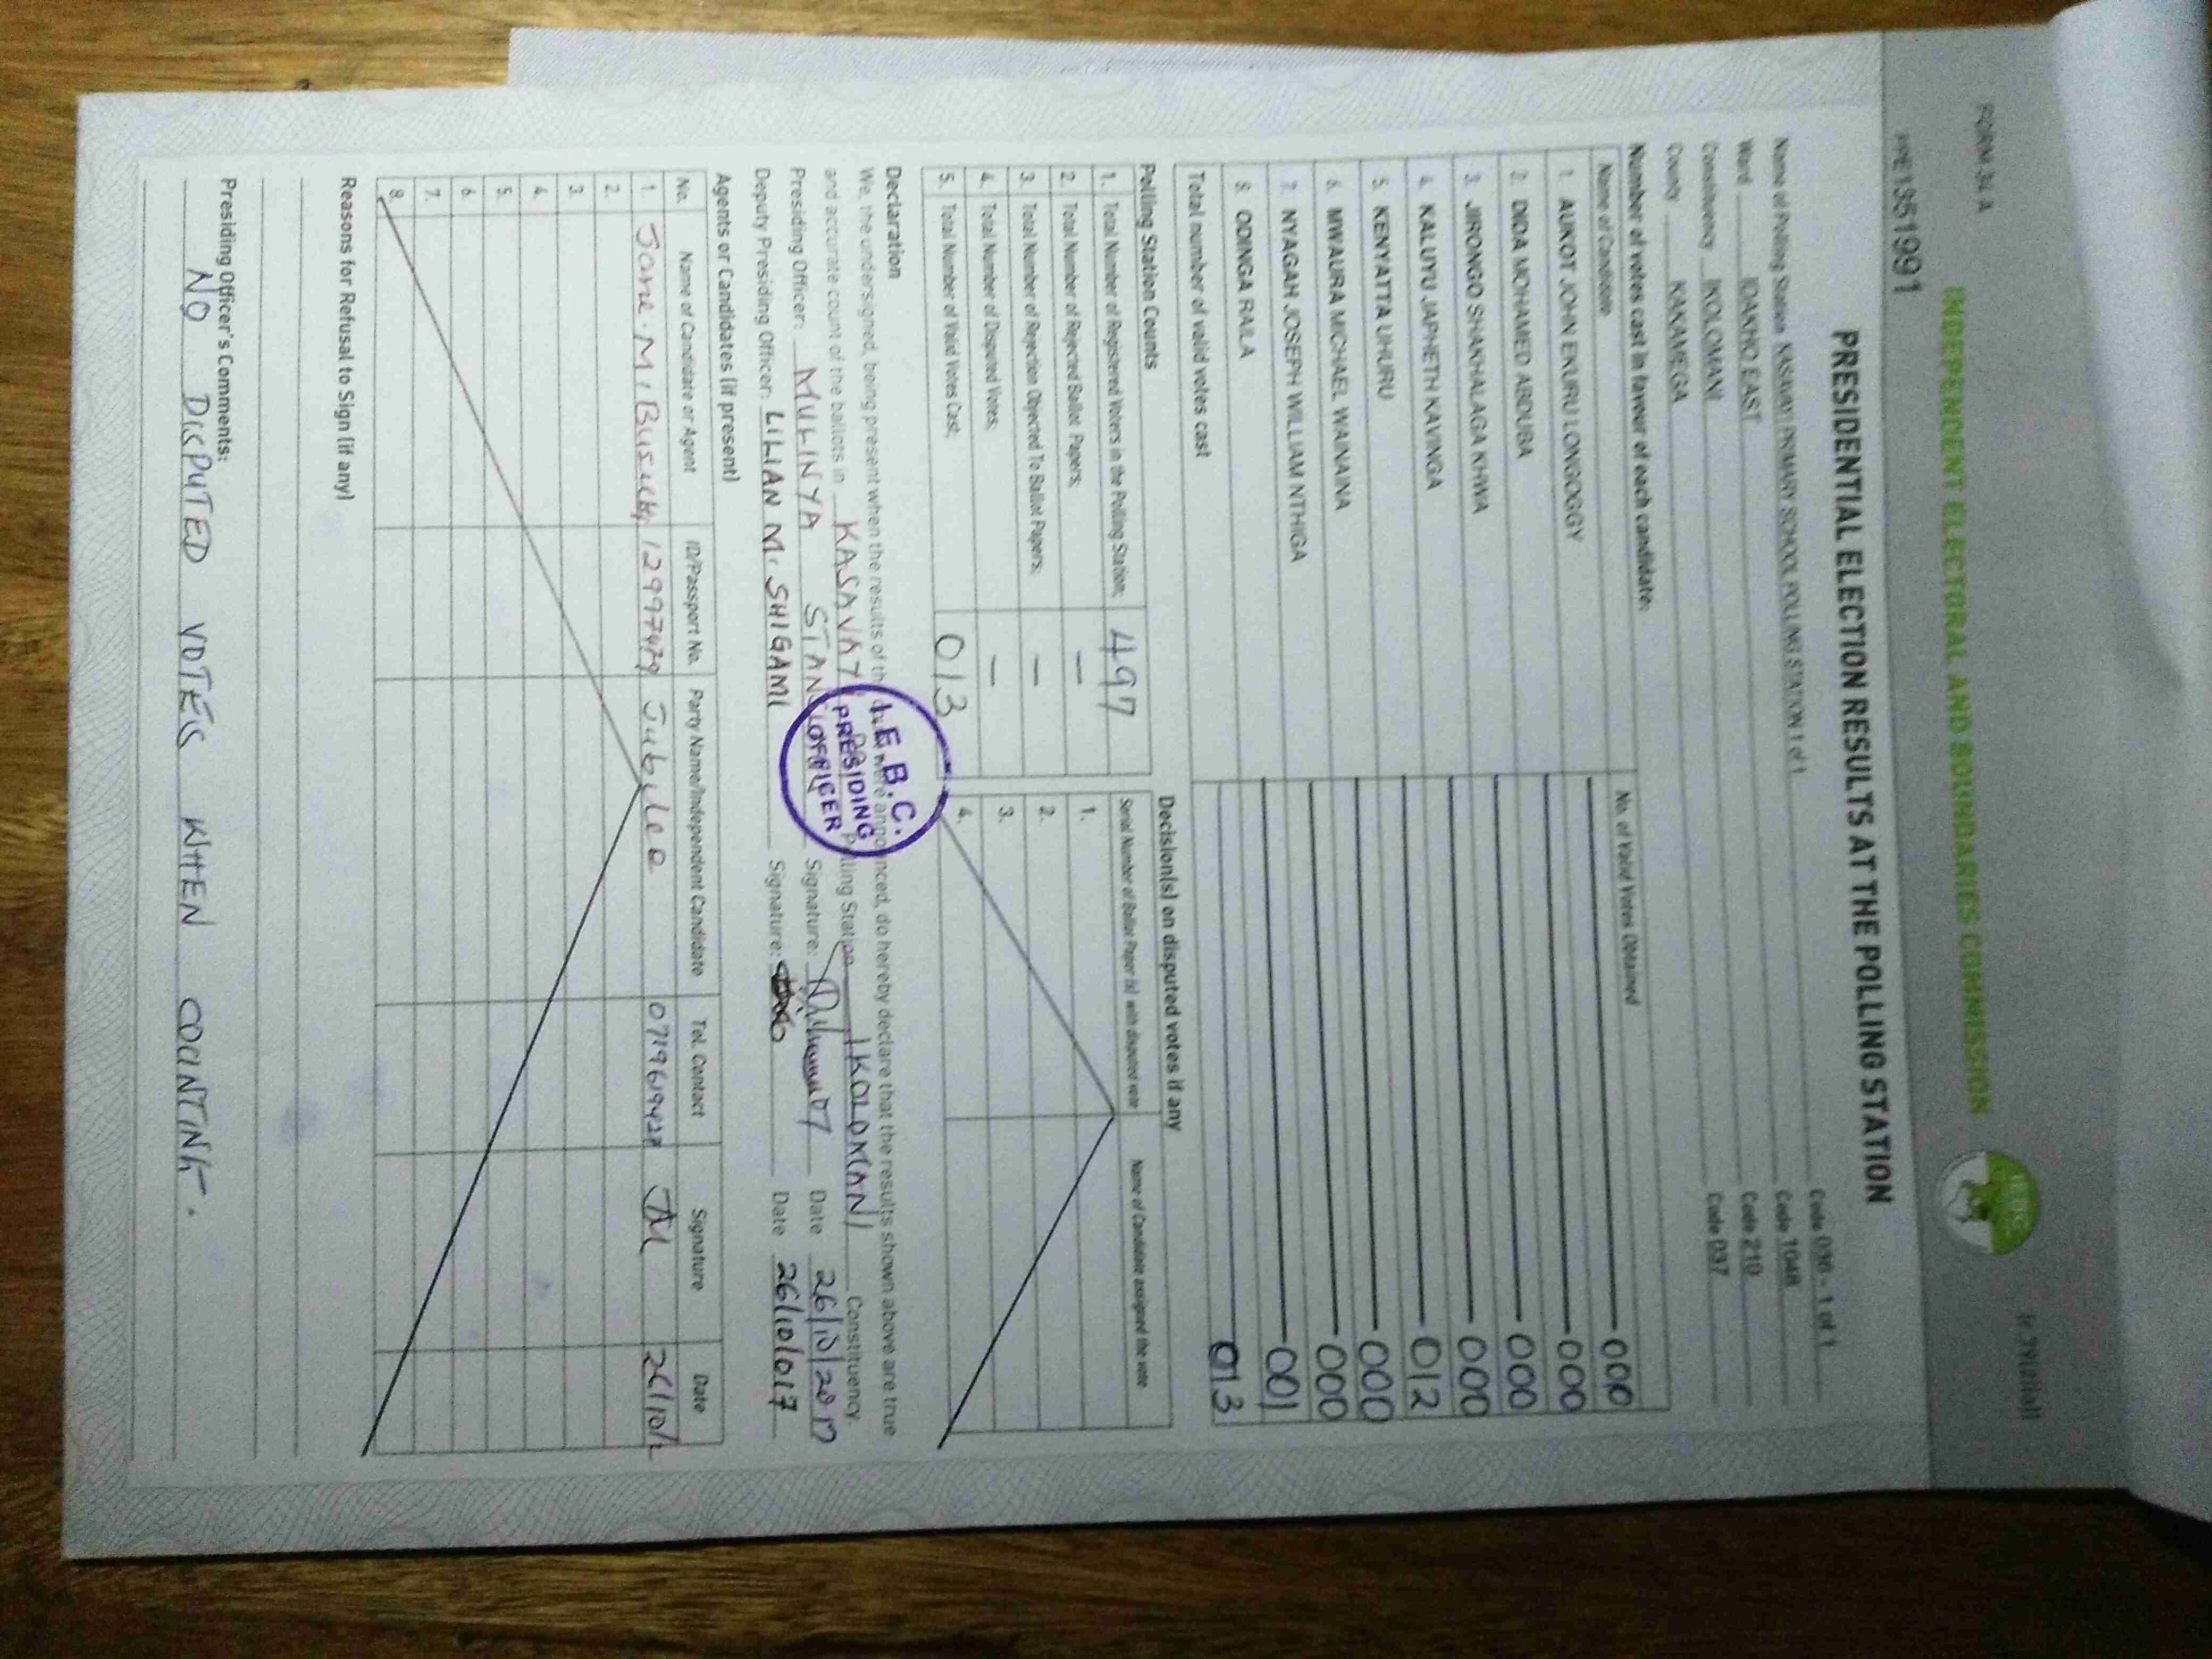 FORM 34 A
INDEPENDENT ELECTORAL AND BOUNDARIES COMMISSION
IEBC
PRESIDENTIAL ELECTION RESULTS AT THE POLLING STATION
Name of Polling Station KASAVAI PRIMARY SCHOOL POLLING STATION 1 of 1 Code 036 - 1 of 1
Ward IDAKHO EAST Code 1048
Constituency IKOLOMANI Code 210
County KAKAMEGA Code 037
Number of votes cast in favour of each candidate:
Name of Candidate No. of Valid Votes Obtained
1. AUKOT JOHN EKURU LONGOGGY 000
2. DIDA MOHAMED ABDUBA 000
3. JIRONGO SHAKHALAGA KHWA 000
4. KALUYU JAPHETH KAVINGA 000
5. KENYATTA UHURU 012
6. MWAURA MICHAEL WAINAINA 000
7. NYAGAH JOSEPH WILLIAM NTHIGA 000
8. ODINGA RAILA 001
Total number of valid votes cast 013
Polling Station Counts
1. Total Number of Registered Voters in the Polling Station; 497
2. Total Number of Rejected Ballot Papers; —
3. Total Number of Rejection Objected To Ballot Papers; —
4. Total Number of Disputed Votes; —
5. Total Number of Valid Votes Cast; 013
Decision(s) on disputed votes if any
Serial Number of Ballot Paper (s) with disputed vote Name of Candidate assigned the vote
1.
2.
3.
4.
Declaration
We, the undersigned, being present when the results of the were announced, do hereby declare that the results shown above are true
and accurate count of the ballots in KASAVAI Polling Station IKOLOMANI Constituency.
Presiding Officer: MULINYA Signature: Date 26/10/2017
Deputy Presiding Officer: LILIAN M. SHIGAMI Signature: Date 26/10/017
I.E.B.C.
PRESIDING
OFFICER
Agents or Candidates (if present)
No. Name of Candidate or Agent ID/Passport No. Party Name/Independent Candidate Tel. Contact Signature Date
1. Jane. M. 12997479 Jubilee
2.
3.
4.
5.
6.
7.
8.
Reasons for Refusal to Sign (if any)
Presiding Officer's Comments:
NO DISPUTED VOTES WHEN COUNTING.